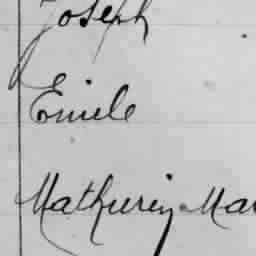 Joseph
Emile
Mathurin Mar